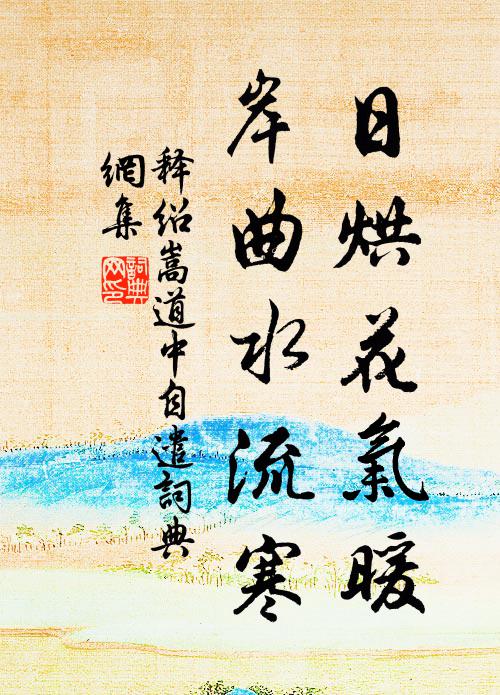 日烘花氣暖
岸曲水流寒
释绍嵩道中自遣詞典
網集
詞典
网印